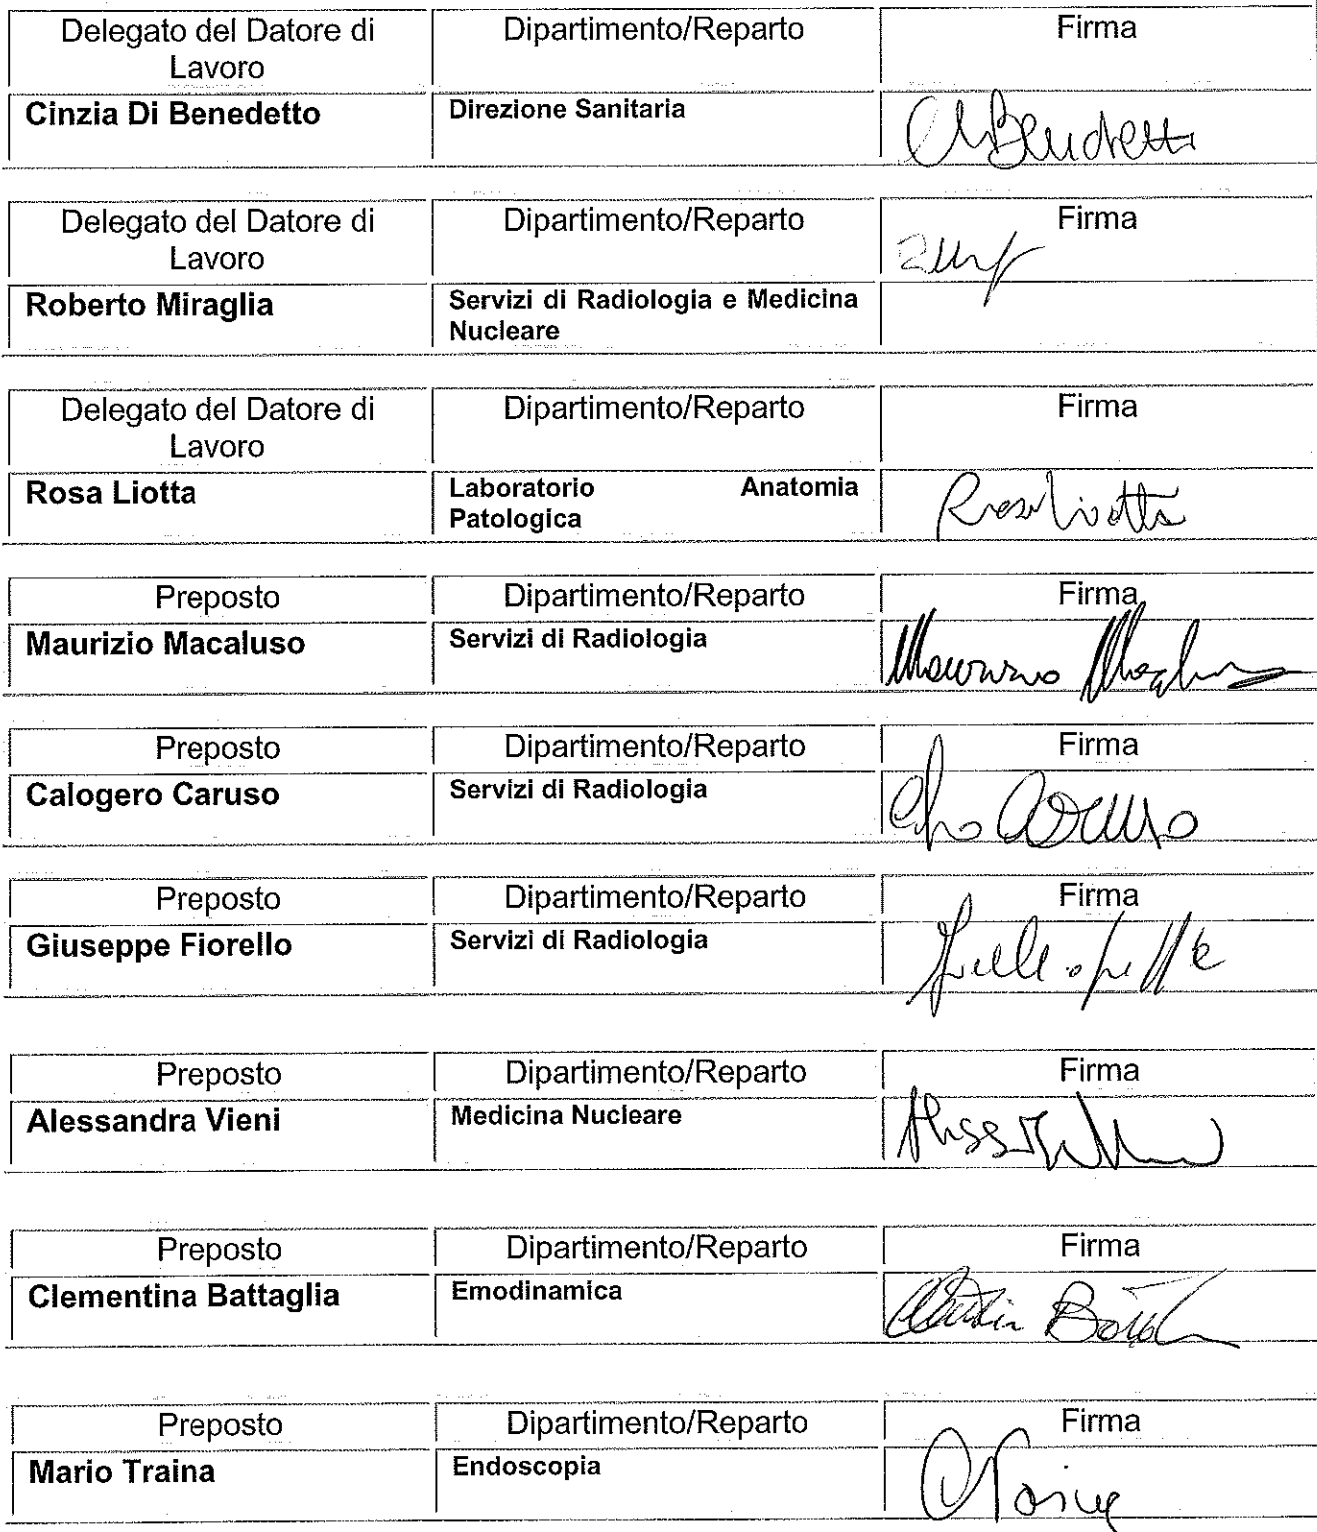 Delegato del Datore di Lavoro Dipartimento/Reparto Firma
Cinzia Di Benedetto Direzione Sanitaria
Delegato del Datore di Lavoro Dipartimento/Reparto Firma
Roberto Miraglia Servizi di Radiologia e Medicina Nucleare
Delegato del Datore di Lavoro Dipartimento/Reparto Firma
Rosa Liotta Laboratorio Anatomia Patologica Rosa Liotta
Preposto Dipartimento/Reparto Firma
Maurizio Macaluso Servizi di Radiologia
Preposto Dipartimento/Reparto Firma
Calogero Caruso Servizi di Radiologia
Preposto Dipartimento/Reparto Firma
Giuseppe Fiorello Servizi di Radiologia
Preposto Dipartimento/Reparto Firma
Alessandra Vieni Medicina Nucleare
Preposto Dipartimento/Reparto Firma
Clementina Battaglia Emodinamica
Preposto Dipartimento/Reparto Firma
Mario Traina Endoscopia